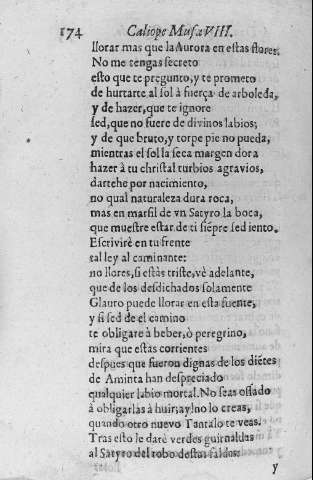 174 Caliope Musa VIII.
llorar mas que la Aurora en estas flores.
No me tengas secreto
esto que te pregunto, y te prometo
de hurtarte al sol à fuerça de arboleda,
y de hazer, que te ignore
sed, que no fuere de diuinos labios;
y de que bruto, y torpe pie no pueda,
mientras el sol la seca margen dora
hazer à tu christal turbios agrauios,
dartehe por nacimiento,
no qual naturaleza dura roca,
mas en marfil de vn Satyro la boca,
que muestre estar de ti siẽpre sediento.
Escriuirè en tu frente
tal ley al caminante:
no llores, si estàs triste, vè adelante,
que de los desdichados solamente
Glauro puede llorar en esta fuente,
y si sed de el camino
te obligare à beber, ò peregrino,
mira que estas corrientes
despues que fueron dignas de los diẽtes
de Aminta han despreciado
qualquier labio mortal. No seas ossado
à obligarlas à huir; ay! no lo creas,
quando otro nuevo Tantalo te veas.
Tras esto le darè verdes guirnaldas
al Satyro del robo destas faldas:
y